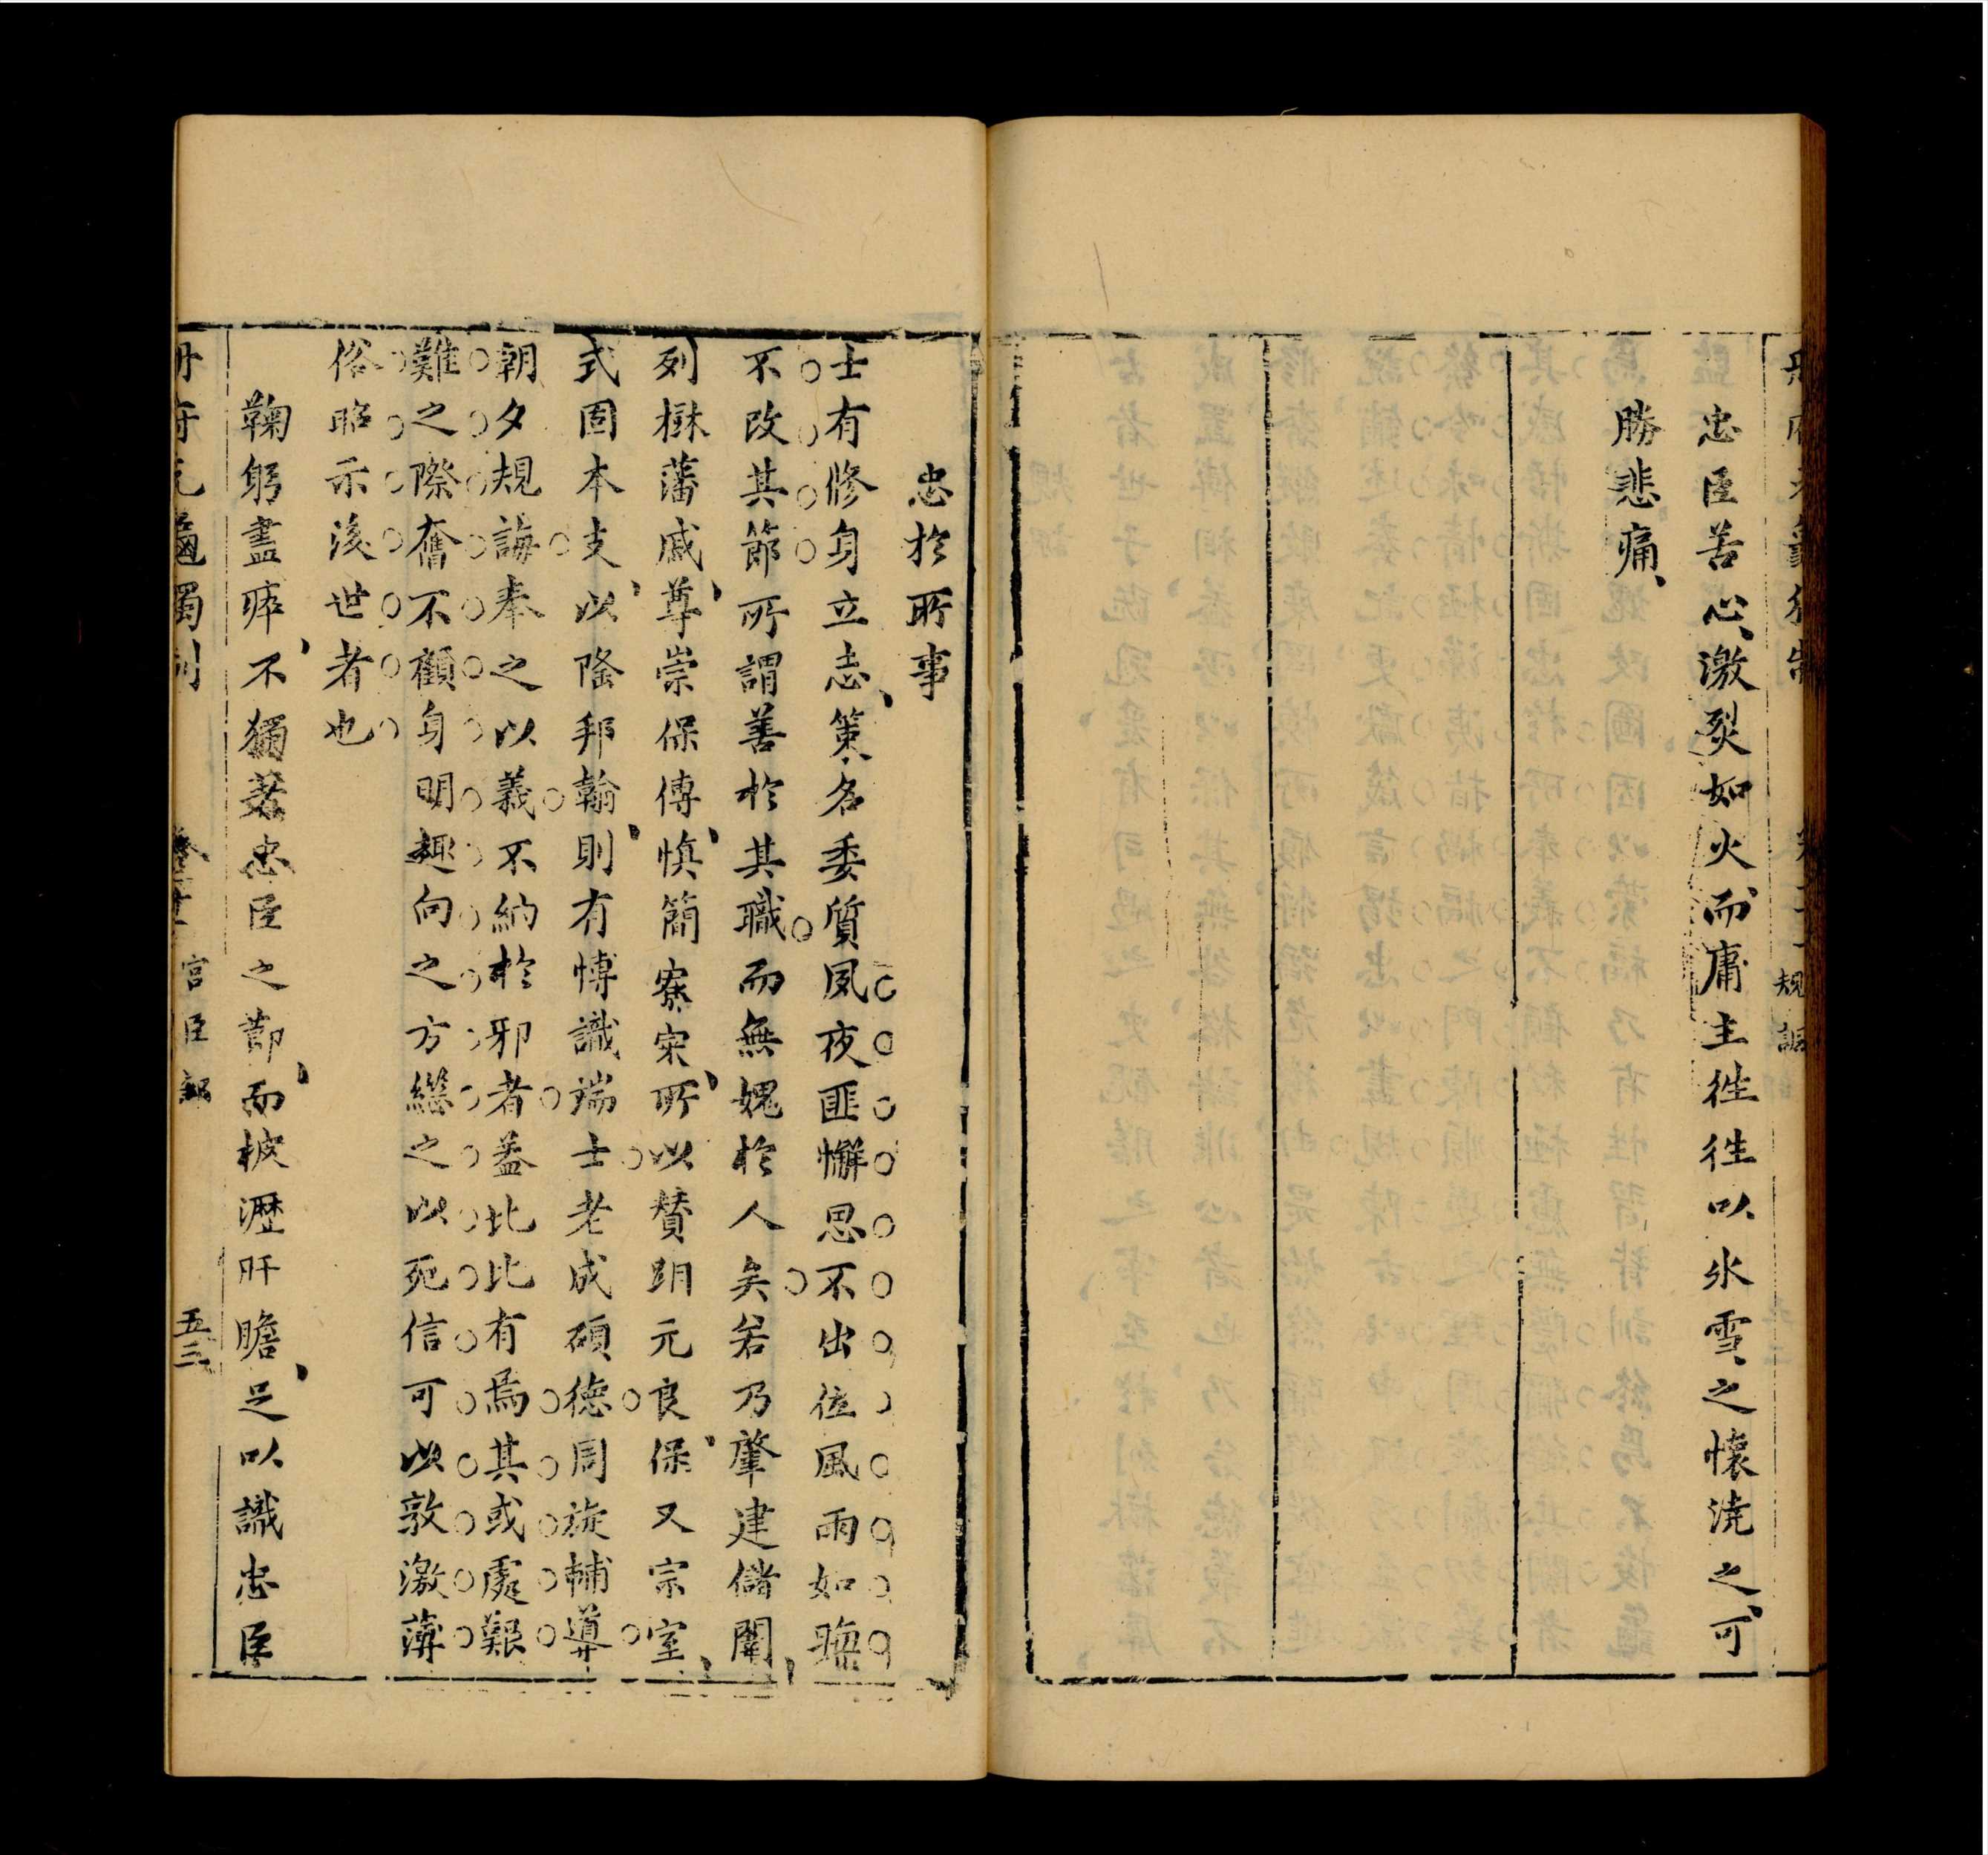 規諷
忠臣苦心激烈如火而庸主徃徃以氷雪之懷澆之可
勝悲痛
忠於所事
士有修身立志策名委質夙夜匪懈思不出位風雨如晦
不改其節所謂善於其職而無媿於人矣若乃肇建儲闈
列樹藩戚尊崇保傅慎簡寮寀所以賛明元良保乂宗室
式固本支以隆邦翰則有博識端士老成碩德周旋輔導
朝夕規誨奉之以義不納於邪者葢比比有焉其或處艱
難之際奮不顧身明趣向之方繼之以死信可以敦激薄
俗昭示後世者也
鞠躬盡瘁不獨著忠臣之節而披瀝肝膽足以識忠臣
宫臣部
五三